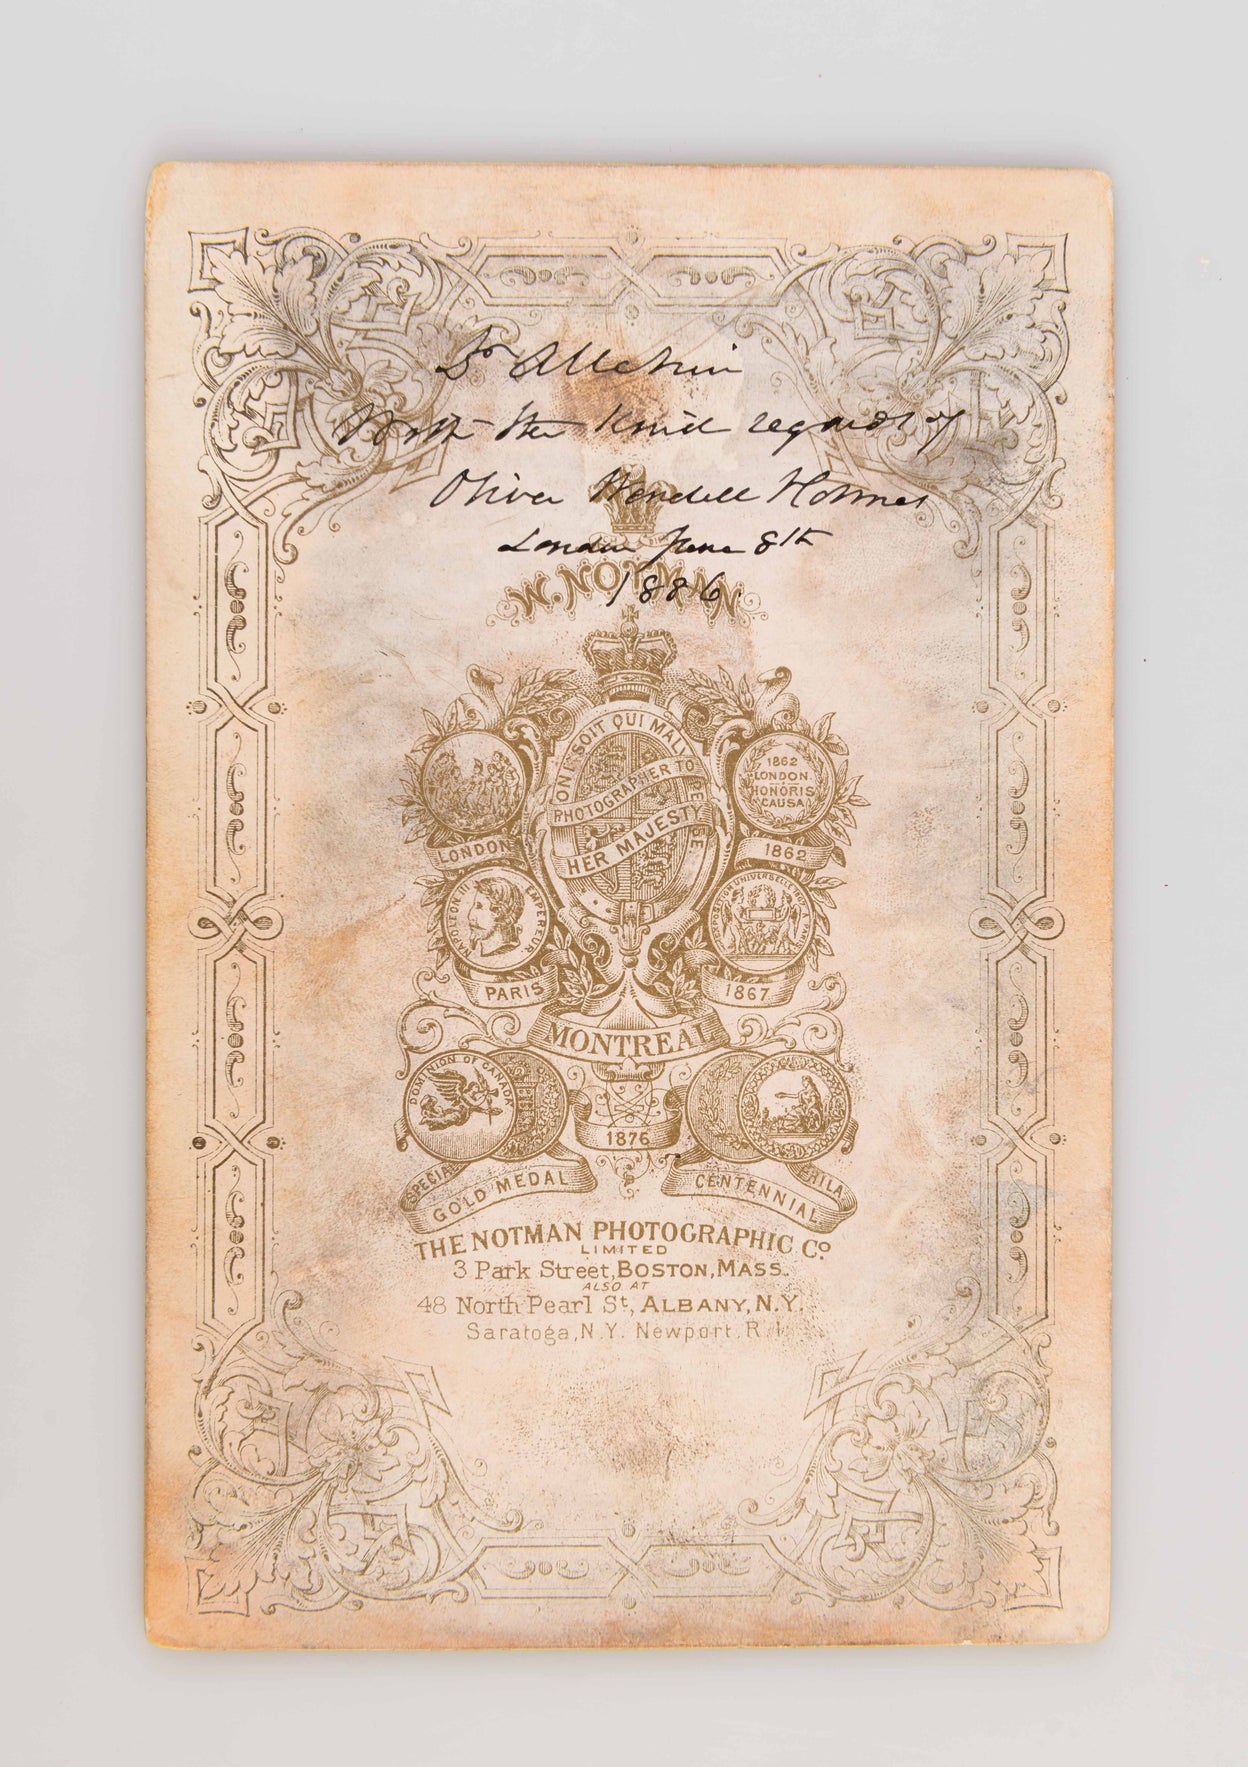 Dr Allchin
With the kind regards of
Oliver Wendell Holmes
London June 8th
1886.
W. NOTMAN
HONI SOIT QUI MAL Y PENSE
PHOTOGRAPHER TO
HER MAJESTY
1862
LONDON.
HONORIS
CAUSA
LONDON
1862
NAPOLEON III EMPEREUR
EXPOSITION UNIVERSELLE 1867 A PARIS
PARIS
1867
MONTREAL
DOMINION OF CANADA
1876
SPECIAL
GOLD MEDAL
CENTENNIAL
PHILA
THE NOTMAN PHOTOGRAPHIC Co
LIMITED
3 Park Street, BOSTON, MASS.
ALSO AT
48 North Pearl St, ALBANY, N.Y.
Saratoga, N.Y. Newport, R.I.